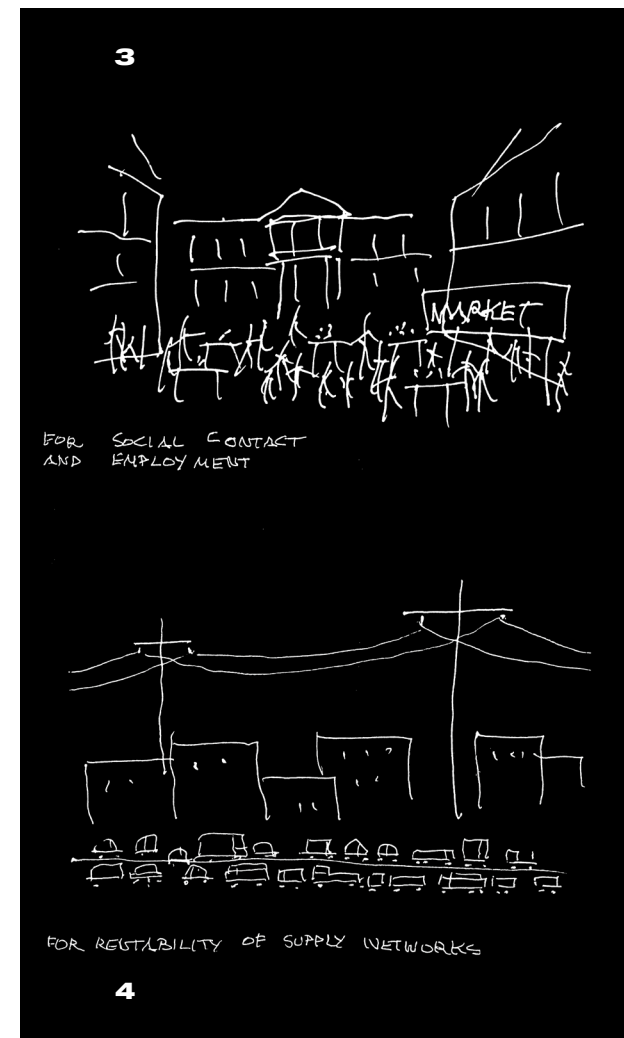 3
MARKET
FOR SOCIAL CONTACT
AND EMPLOYMENT
FOR RENTABILITY OF SUPPLY NETWORKS
4